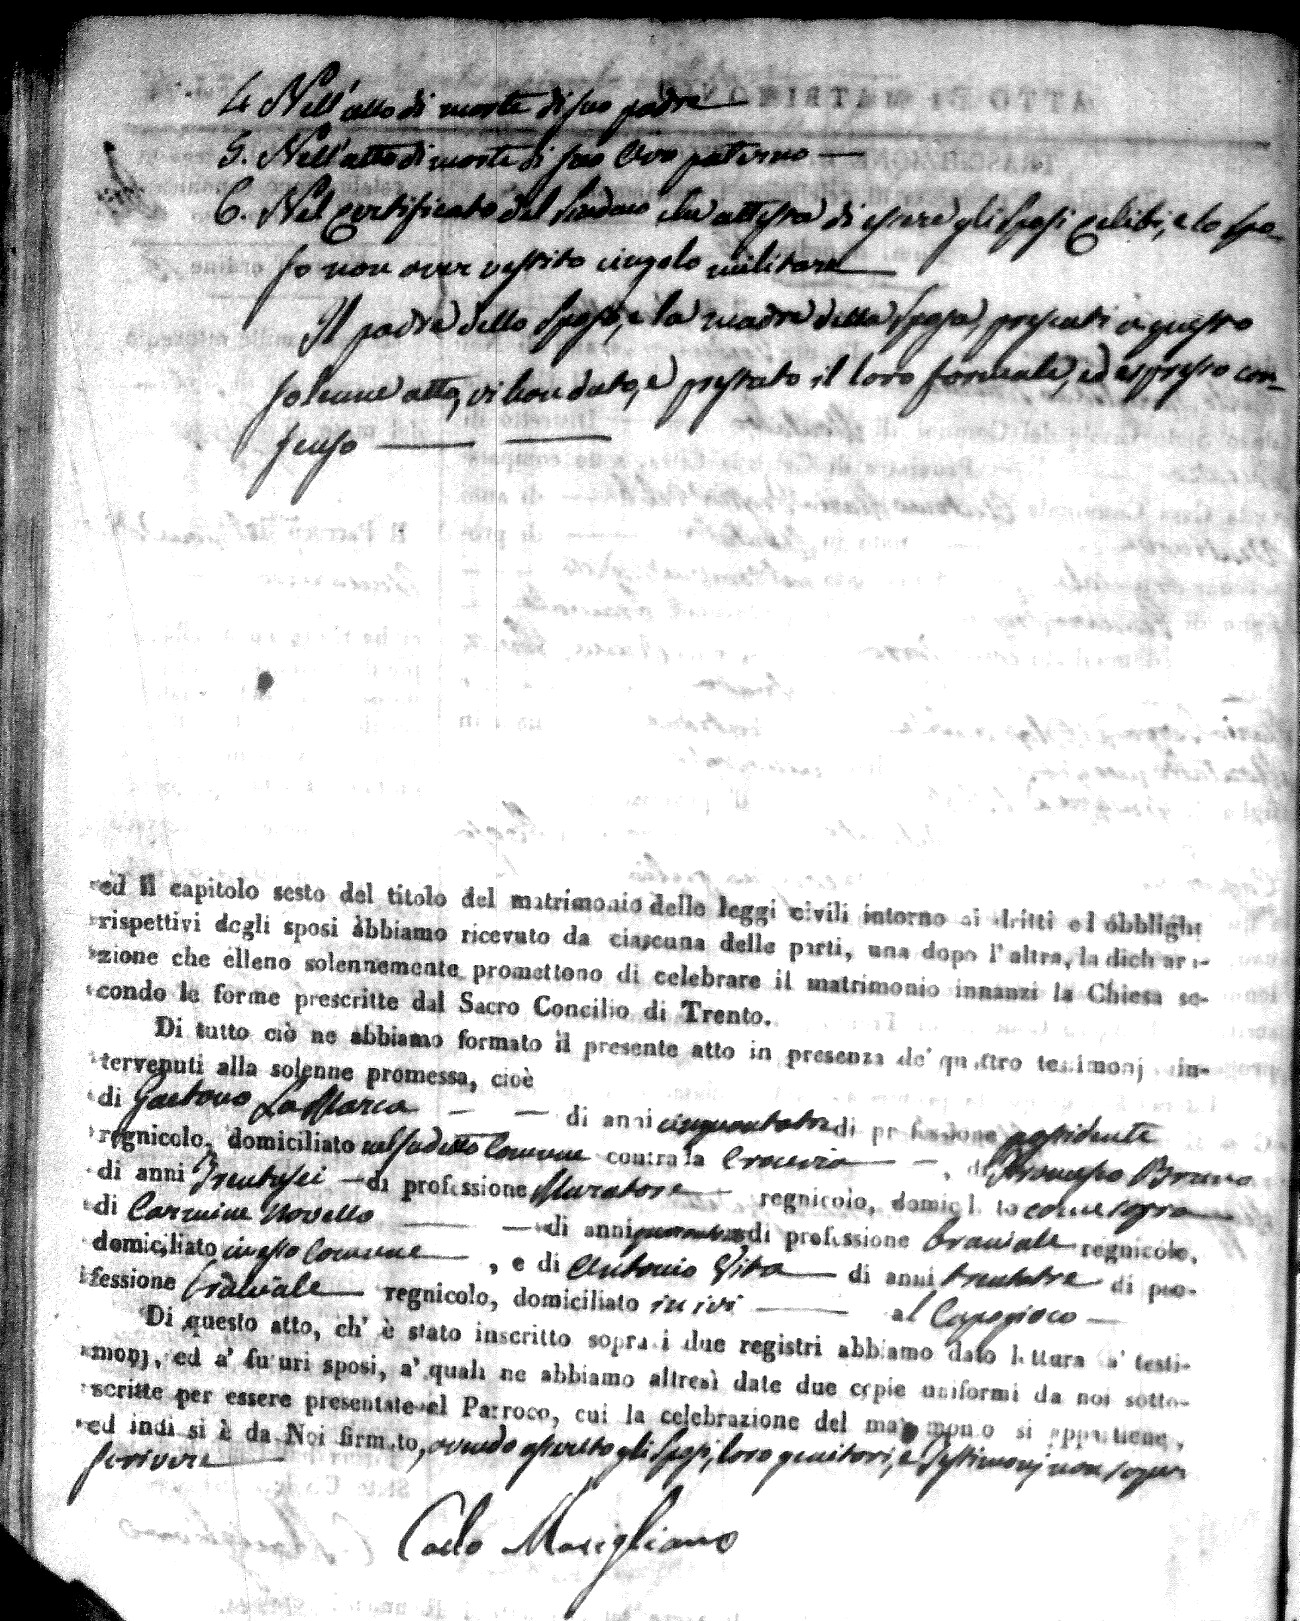 4. Nell'atto di morte di suo padre
5. Nell'atto di morte di suo Avo paterno
6. Nel certificato del Sindaco che attesta di essere gli Sposi celibi, e lo spo-
so non aver vestito cingolo militare
Il padre dello Sposo, e la madre della Sposa, presenti a questo
solenne atto, vi han dato, e prestato il loro formale, ed espresso con-
senso
ed il capitolo sesto del titolo del matrimonio delle leggi civili intorno ai dritti ed obblighi
rispettivi degli sposi abbiamo ricevuto da ciascuna delle parti, una dopo l'altra, la dichiara-
zione che elleno solennemente promettono di celebrare il matrimonio innanzi la Chiesa se-
condo le forme prescritte dal Sacro Concilio di Trento.
Di tutto ciò ne abbiamo formato il presente atto in presenza de' quattro testimonj in-
tervenuti alla solenne promessa, cioè
di Gaetano La Marca di anni cinquantatre di professione possidente
regnicolo, domiciliato nel sudetto Comune contrada Crocevia, di Francesco Bruno
di anni Trentasei di professione Muratore regnicolo, domiciliato come sopra
di Carmine Novello di anni di professione Braciale regnicolo,
domiciliato in esso Comune, e di Antonio Vita di anni trentatre di pro-
fessione Braciale regnicolo, domiciliato in ivi al Capogioco
Di questo atto, ch' è stato inscritto sopra i due registri abbiamo dato lettura a' testi-
monj, ed a' futuri sposi, a' quali ne abbiamo altresì date due copie uniformi da noi sotto-
scritte per essere presentate al Parroco, cui la celebrazione del matrimonio si appartiene,
ed indi si è da Noi firmato, avendo asserito gli Sposi, loro genitori, e Testimonj non saper
scrivere
Carlo Marigliano